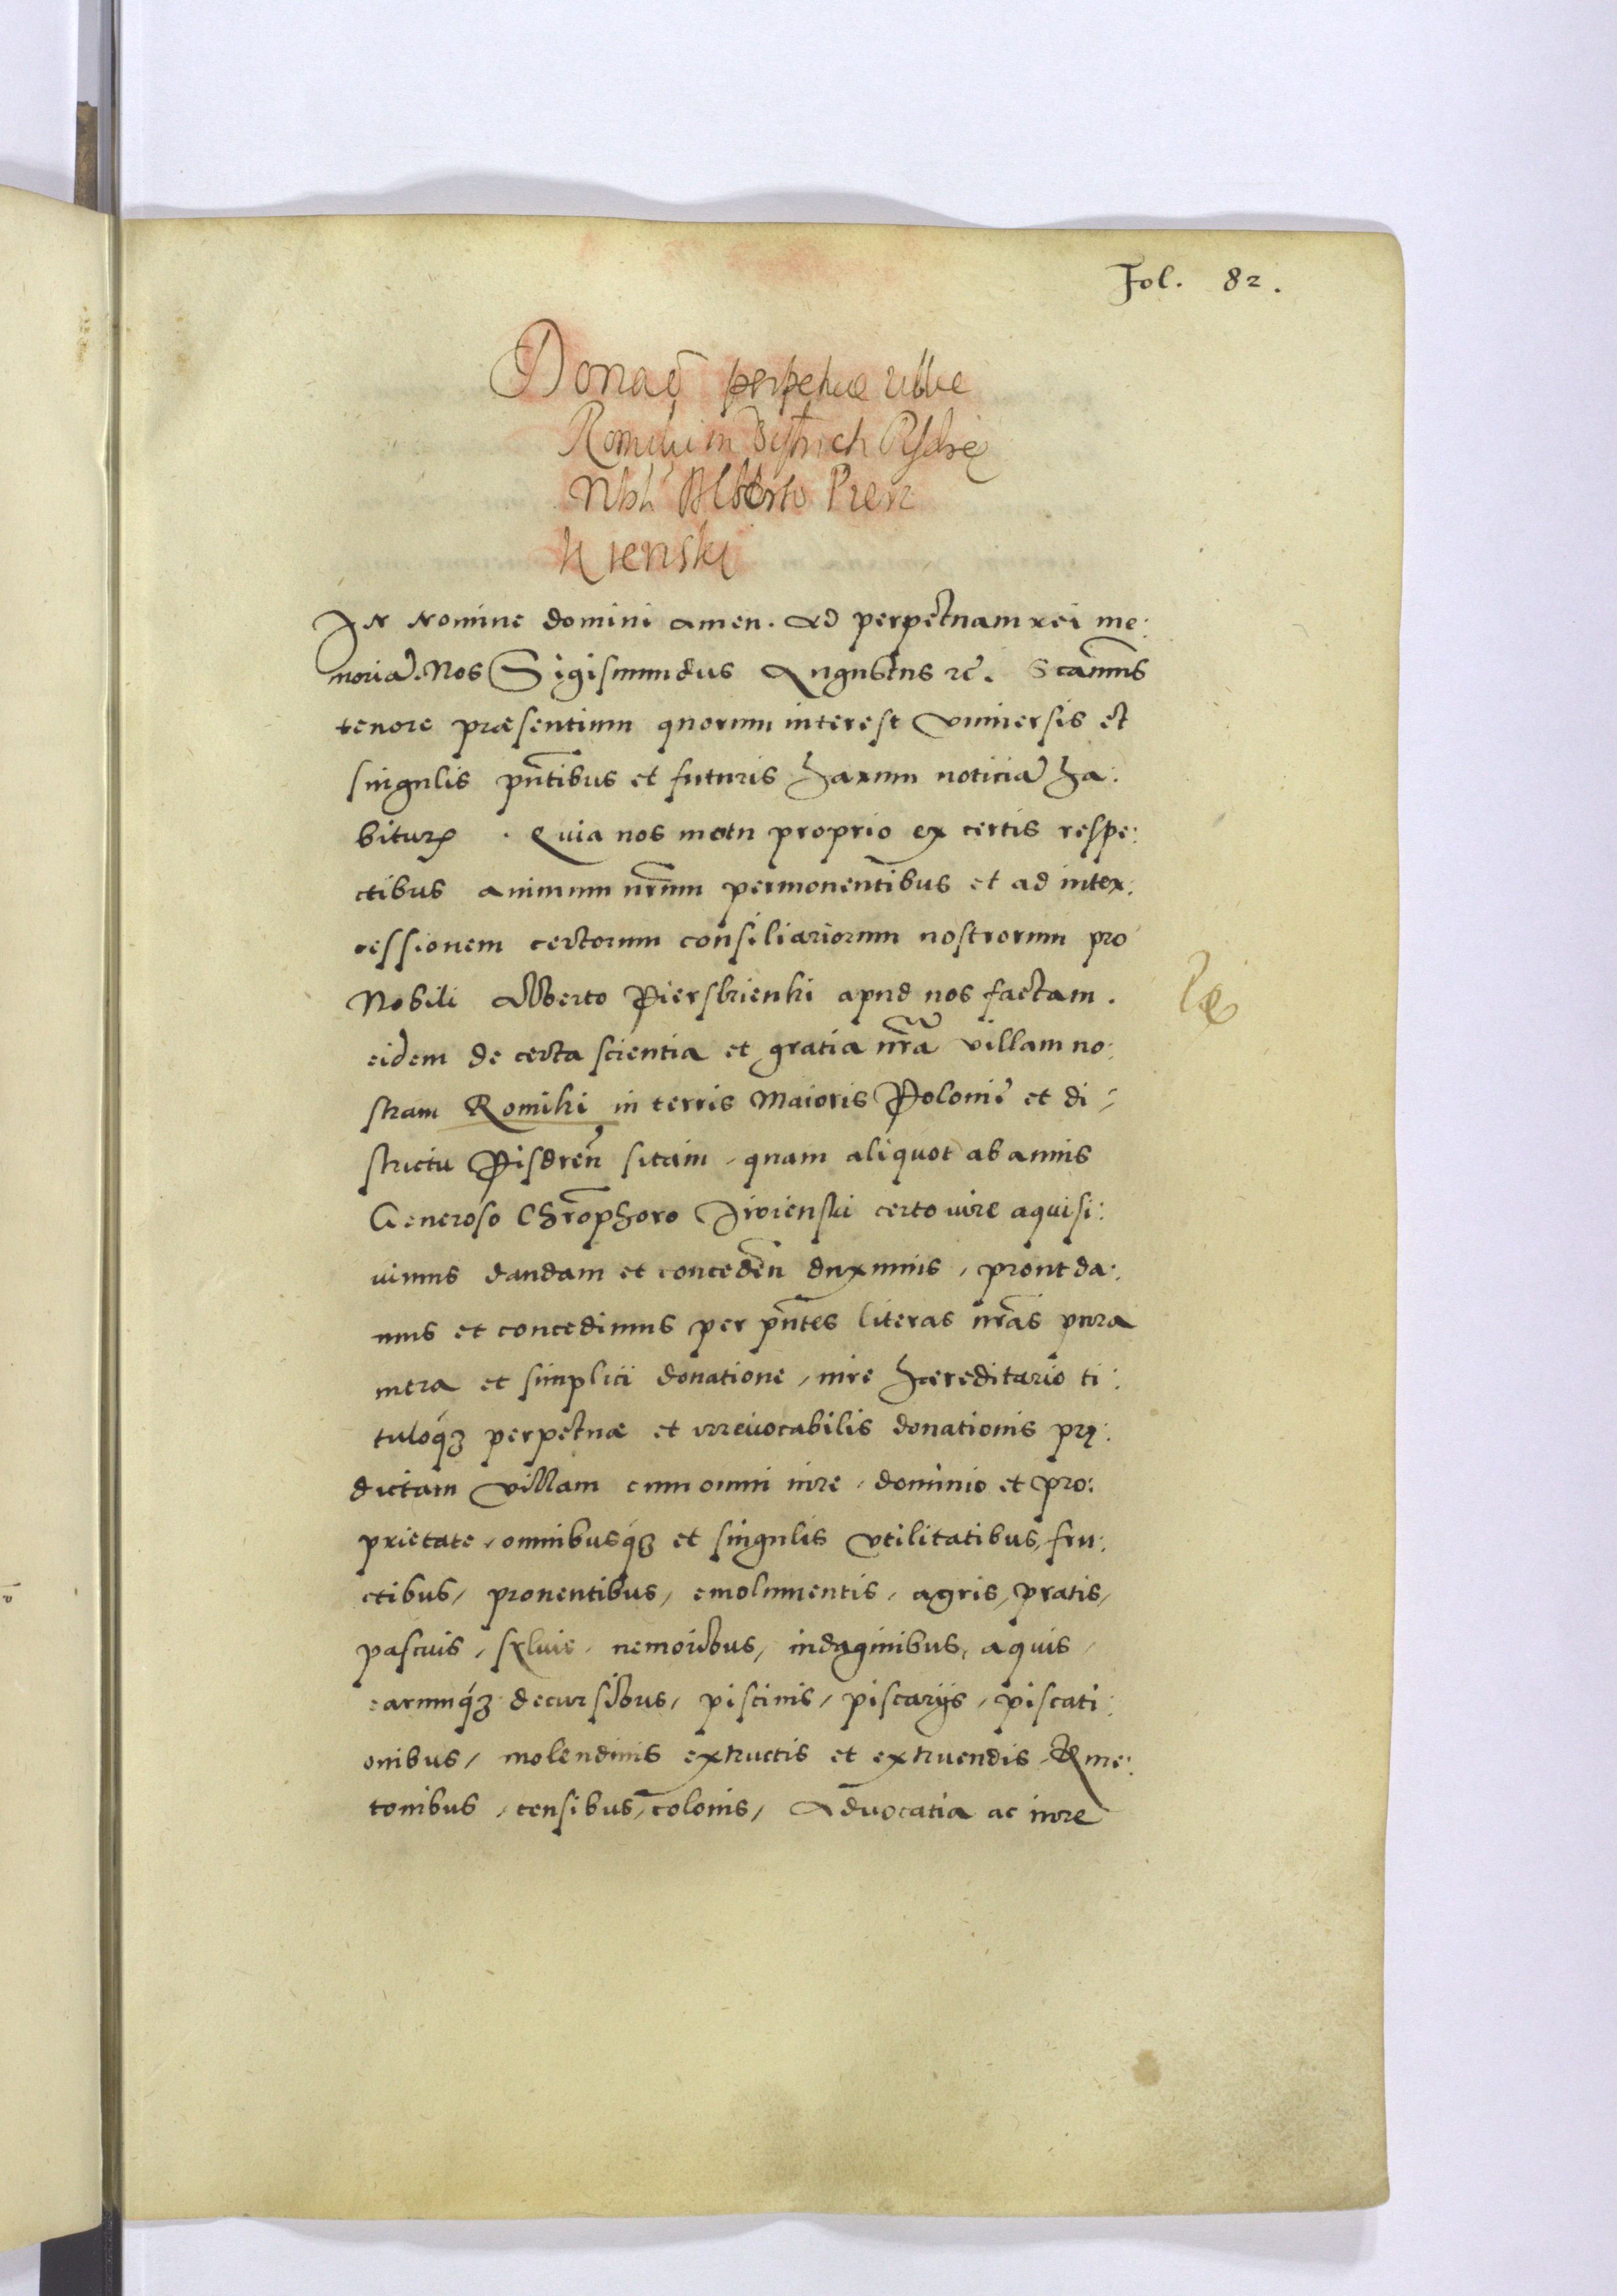 Fol. 82.
Donac̃ perpetuæ villæ
Romiki in Districtu Pysdrẽ
Nbli Alberto Piers
kienski
In nomine domini amen. Ad perpetuam rei me:
moriã. Nos Sigismundus Augustus rc̃. Scam̃us
tenore præsentium quorum interest vniuersis et
singulis pñtibus et futuris harum noticiã ha:
bituꝝ. Quia nos motu proprio ex certis respe:
ctibus animum nr̃um permonentibus et ad inter:
cessionem certorum consiliariorum nostrorum pro
Nobili Alberto Pierskienki apud nos factam.
eidem de certa scientia et gratia nr̃a villam no:
stram Romiki in terris Maioris Poloniẽ et di:
strictu Pisdreñ sitam, quam aliquot ab annis
Generoso Chr̃ophoro Iwienski certo iure aquisi:
uimus dandam et conceden̄ duximus, prout da:
mus et concedimus per pñtes literas nr̃as pura
mera et simplici donatione, iure hæreditario ti:
tuloq́ꝫ perpetuæ et irreuocabilis donationis prę:
dictam villam cum omni iure, dominio et pro:
prietate, omnibusq́ꝫ et singulis vtilitatibus, fru:
ctibus, prouentibus, emolumentis, agris, pratis,
pascuis, syluis, nemoribus, indaginibus, aquis,
earumq́ꝫ decursibus, piscinis, piscarijs, piscati:
onibus, molendinis extructis et extruendis, Kme:
tonibus, censibus, colonis, Aduocatia ac iure